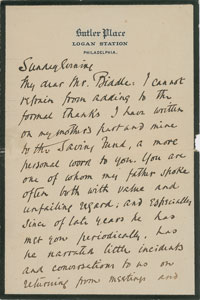 Butler Place
LOGAN STATION
PHILADELPHIA.
Sunday Evening
My dear Mr. Biddle: I cannot
refrain from adding to the
formal thanks I have written
on my mother's part and mine
to the Saving Fund, a more
personal word to you. You are
one of whom my father spoke
often both with value and
unfailing regard, and especially
since of late years he has
met you periodically, has
he narrated little incidents
and conversations to us on
returning from meetings and